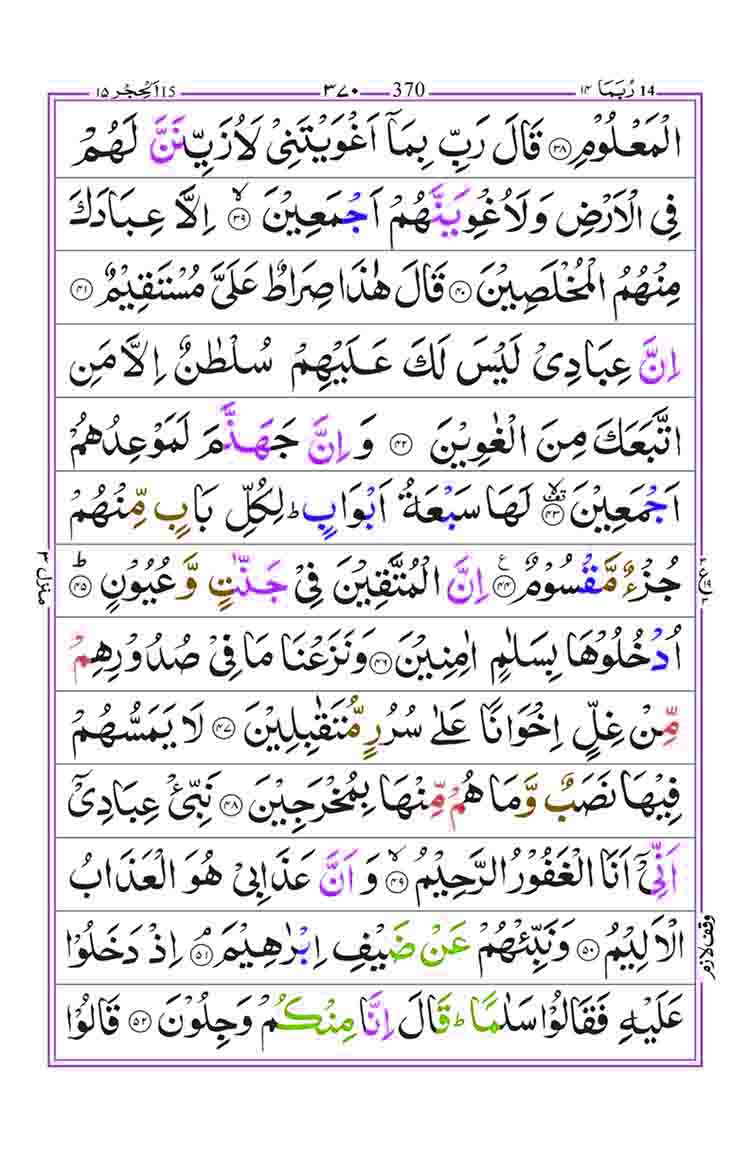 ١٤ رُبَمَا 14 370 ٣٧٠ 15 اَلْحِجْر ١٥
الْمَعْلُوْمِ ﴿٣٨﴾ قَالَ رَبِّ بِمَاۤ اَغْوَيْتَنِىْ لَاُزَيِّنَنَّ لَهُمْ
فِى الْاَرْضِ وَلَاُغْوِيَنَّهُمْ اَجْمَعِيْنَۙ ﴿٣٩﴾ اِلَّا عِبَادَكَ
مِنْهُمُ الْمُخْلَصِيْنَ ﴿٤٠﴾ قَالَ هٰذَا صِرَاطٌ عَلَىَّ مُسْتَقِيْمٌ ﴿٤١﴾
اِنَّ عِبَادِىْ لَيْسَ لَكَ عَلَيْهِمْ سُلْطٰنٌ اِلَّا مَنِ
اتَّبَعَكَ مِنَ الْغٰوِيْنَ ﴿٤٢﴾ وَاِنَّ جَهَنَّمَ لَمَوْعِدُهُمْ
اَجْمَعِيْنَۙ ﴿٤٣﴾ لَهَا سَبْعَةُ اَبْوَابٍؕ لِكُلِّ بَابٍ مِّنْهُمْ
جُزْءٌ مَّقْسُوْمٌ ﴿٤٤﴾ اِنَّ الْمُتَّقِيْنَ فِىْ جَنّٰتٍ وَّعُيُوْنٍؕ ﴿٤٥﴾
اُدْخُلُوْهَا بِسَلٰمٍ اٰمِنِيْنَ ﴿٤٦﴾ وَنَزَعْنَا مَا فِىْ صُدُوْرِهِمْ
مِّنْ غِلٍّ اِخْوَانًا عَلٰى سُرُرٍ مُّتَقٰبِلِيْنَ ﴿٤٧﴾ لَا يَمَسُّهُمْ
فِيْهَا نَصَبٌ وَّمَا هُمْ مِّنْهَا بِمُخْرَجِيْنَ ﴿٤٨﴾ نَبِّئْ عِبَادِىْۤ
اَنِّىْۤ اَنَا الْغَفُوْرُ الرَّحِيْمُۙ ﴿٤٩﴾ وَاَنَّ عَذَابِىْ هُوَ الْعَذَابُ
الْاَلِيْمُ ﴿٥٠﴾ وَنَبِّئْهُمْ عَنْ ضَيْفِ اِبْرٰهِيْمَۘ ﴿٥١﴾ اِذْ دَخَلُوْا
عَلَيْهِ فَقَالُوْا سَلٰمًاؕ قَالَ اِنَّا مِنْكُمْ وَجِلُوْنَ ﴿٥٢﴾ قَالُوْا
منزل ٣
وقف لازم